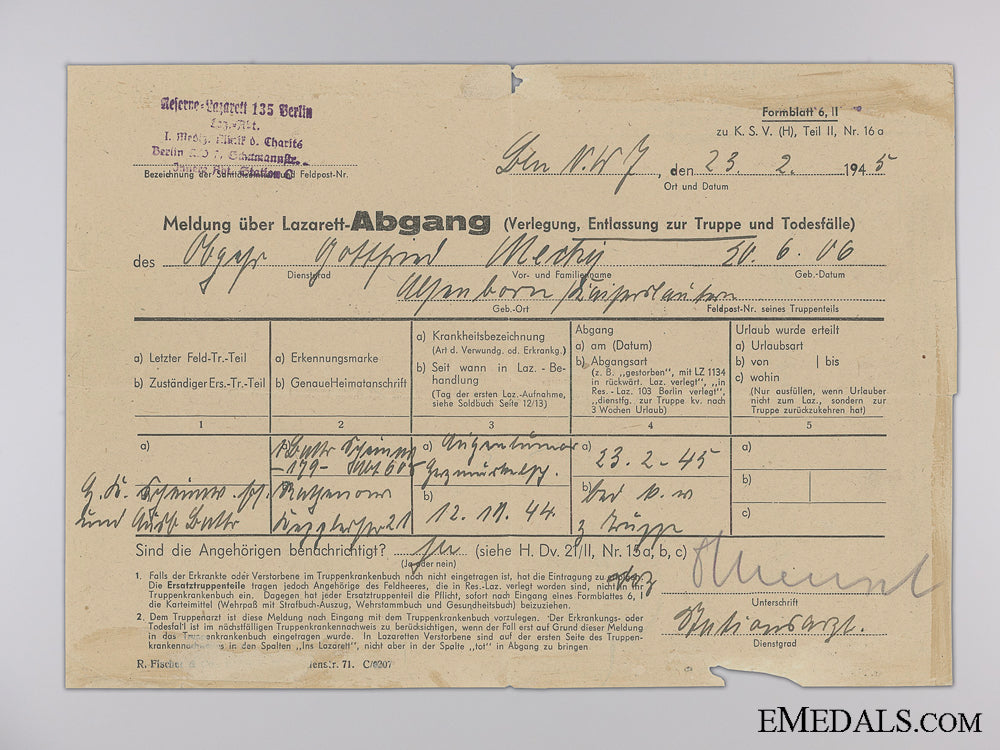 Reserve-Lazarett 135 Berlin
Laz.-Abt.
I. Mediz. Klinik d. Charité
Berlin Schumannstr.
Station
Bezeichnung der Feldpost-Nr.
Formblatt 6, II
zu K. S. V. (H), Teil II, Nr. 16a
Bln N.W 7, den 23. 2. 1945
Ort und Datum
Meldung über Lazarett-Abgang (Verlegung, Entlassung zur Truppe und Todesfälle)
des Obgefr Gottfried 30. 6. 06
Dienstgrad Vor- und Familienname Geb.-Datum
Alsenborn / Kaiserslautern
Geb.-Ort Feldpost-Nr. seines Truppenteils
a) Letzter Feld-Tr.-Teil
b) Zuständiger Ers.-Tr.-Teil
1
a) Erkennungsmarke
b) Genaue Heimatanschrift
2
a) Krankheitsbezeichnung
(Art d. Verwundg. od. Erkrankg.)
b) Seit wann in Laz. - Be-
handlung
(Tag der ersten Laz.-Aufnahme,
siehe Soldbuch Seite 12/13)
3
Abgang
a) am (Datum)
b) Abgangsart
(z. B. „gestorben", mit LZ 1134
in rückwärt. Laz. verlegt", „in
Res.- Laz. 103 Berlin verlegt",
„dienstfg. zur Truppe kv. nach
3 Wochen Urlaub)
4
Urlaub wurde erteilt
a) Urlaubsart
b) von | bis
c) wohin
(Nur ausfüllen, wenn Urlauber
nicht zum Laz., sondern zur
Truppe zurückzukehren hat)
5
a)
und Ausb Battr
Battr
-179-
Rathenow
Kepplerstr 21
a) Augentumor
b)
12. 11. 44
a)
23. 2. 45
b) bed k. v
z Truppe
a)
b)
c)
Sind die Angehörigen benachrichtigt? ja (siehe H. Dv. 21/II, Nr. 15a, b, c)
(Ja oder nein)
1. Falls der Erkrankte oder Verstorbene im Truppenkrankenbuch noch nicht eingetragen ist, hat die Eintragung zu
Die Ersatztruppenteile tragen jedoch Angehörige des Feldheeres, die in Res.-Laz. verlegt worden sind, nicht in ihr
Truppenkrankenbuch ein. Dagegen hat jeder Ersatztruppenteil die Pflicht, sofort nach Eingang eines Formblattes 6, I
die Karteimittel (Wehrpaß mit Strafbuch-Auszug, Wehrstammbuch und Gesundheitsbuch) beizuziehen.
2. Dem Truppenarzt ist diese Meldung nach Eingang mit dem Truppenkrankenbuch vorzulegen. Der Erkrankungs- oder
Todesfall ist im nächstfälligen Truppenkrankennachweis zu berücksichtigen, wenn der Fall erst auf Grund dieser Meldung
in das Truppenkrankenbuch eingetragen wurde. In Lazaretten Verstorbene sind auf der ersten Seite des Truppen-
krankennachweises in den Spalten „Ins Lazarett", nicht aber in der Spalte „tot" in Abgang zu bringen
Unterschrift
Stationsarzt.
Dienstgrad
R. Fischer 71. C/0207
EMEDALS.COM